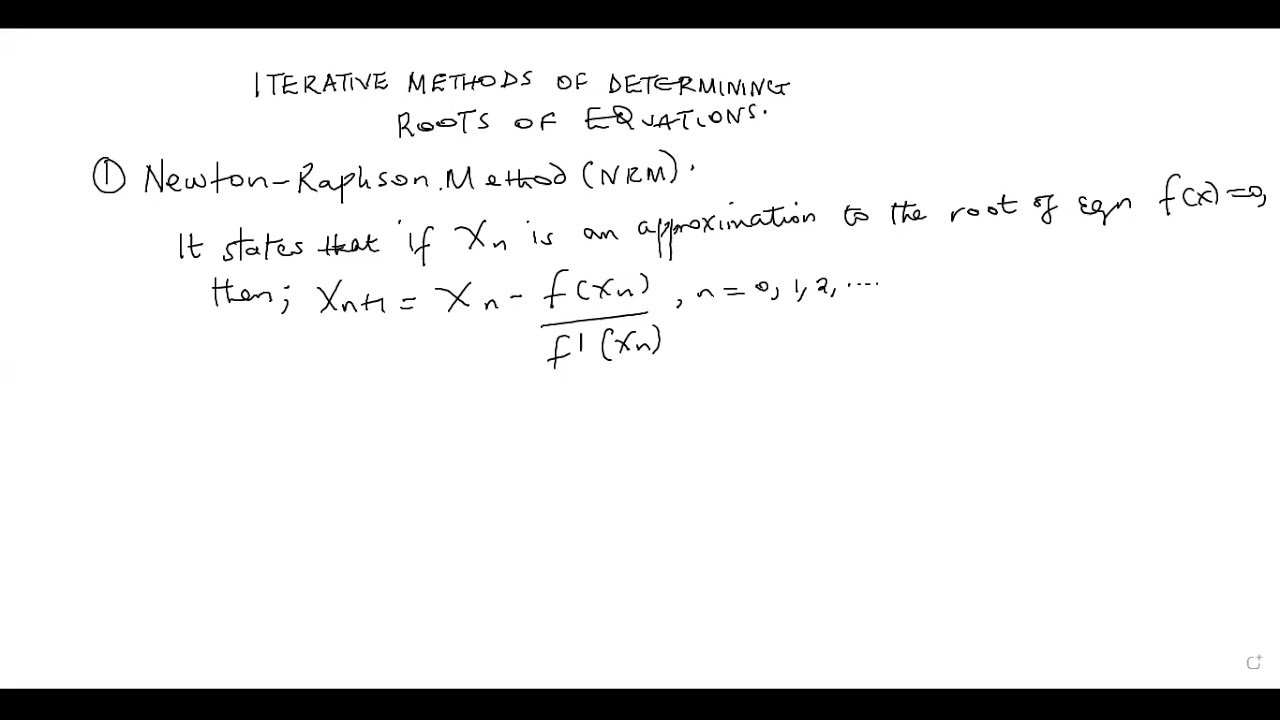 ITERATIVE METHODS OF DETERMINING
ROOTS OF EQUATIONS.
① Newton-Raphson Method (NRM).
It states that if Xn is an approximation to the root of eqn f(x)=0,
then; Xn+1 = Xn - f(Xn)/f'(Xn), n = 0, 1, 2, ....